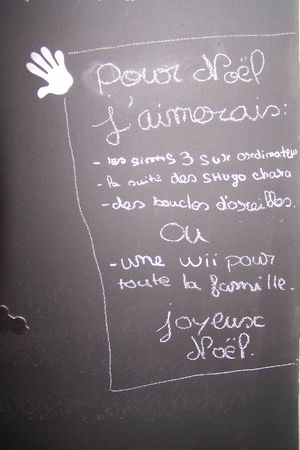 Pour Noël
j'aimerais:
- les sims 3 sur ordinateur
- la suite des SHugo chara
- des boucles d'oreilles.
OU
- une wii pour
toute la famille.
joyeux
Noël.